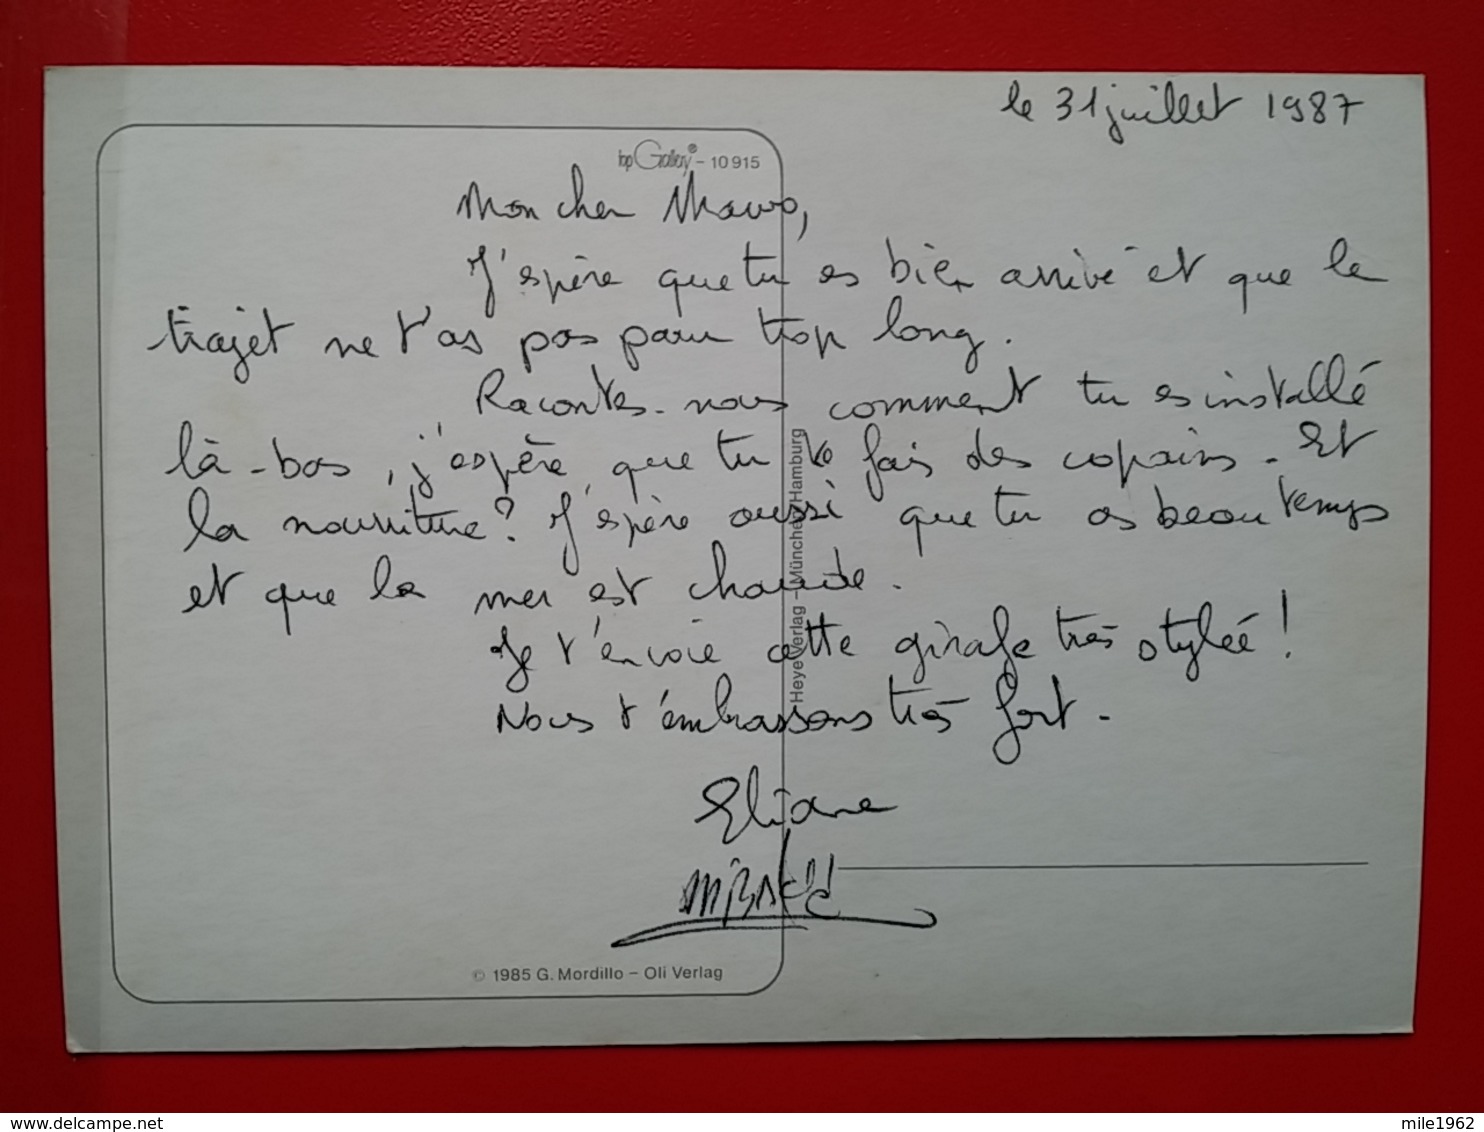 le 31 juillet 1987
top Gallery® – 10 915
Mon cher
J'espère que tu es bien arrivé et que le
trajet ne t'as pas paru trop long.
Racontes-nous comment tu es installé
là-bas, j'espère que tu te fais des copains. Et
la nourriture? J'espère aussi que tu as beau temps
et que la mer est chaude.
Je t'envoie cette girafe très stylée!
Nous t'embrassons très fort.
Eliane
Heye Verlag – München/Hamburg
© 1985 G. Mordillo – Oli Verlag
delcampe.net
mile1962